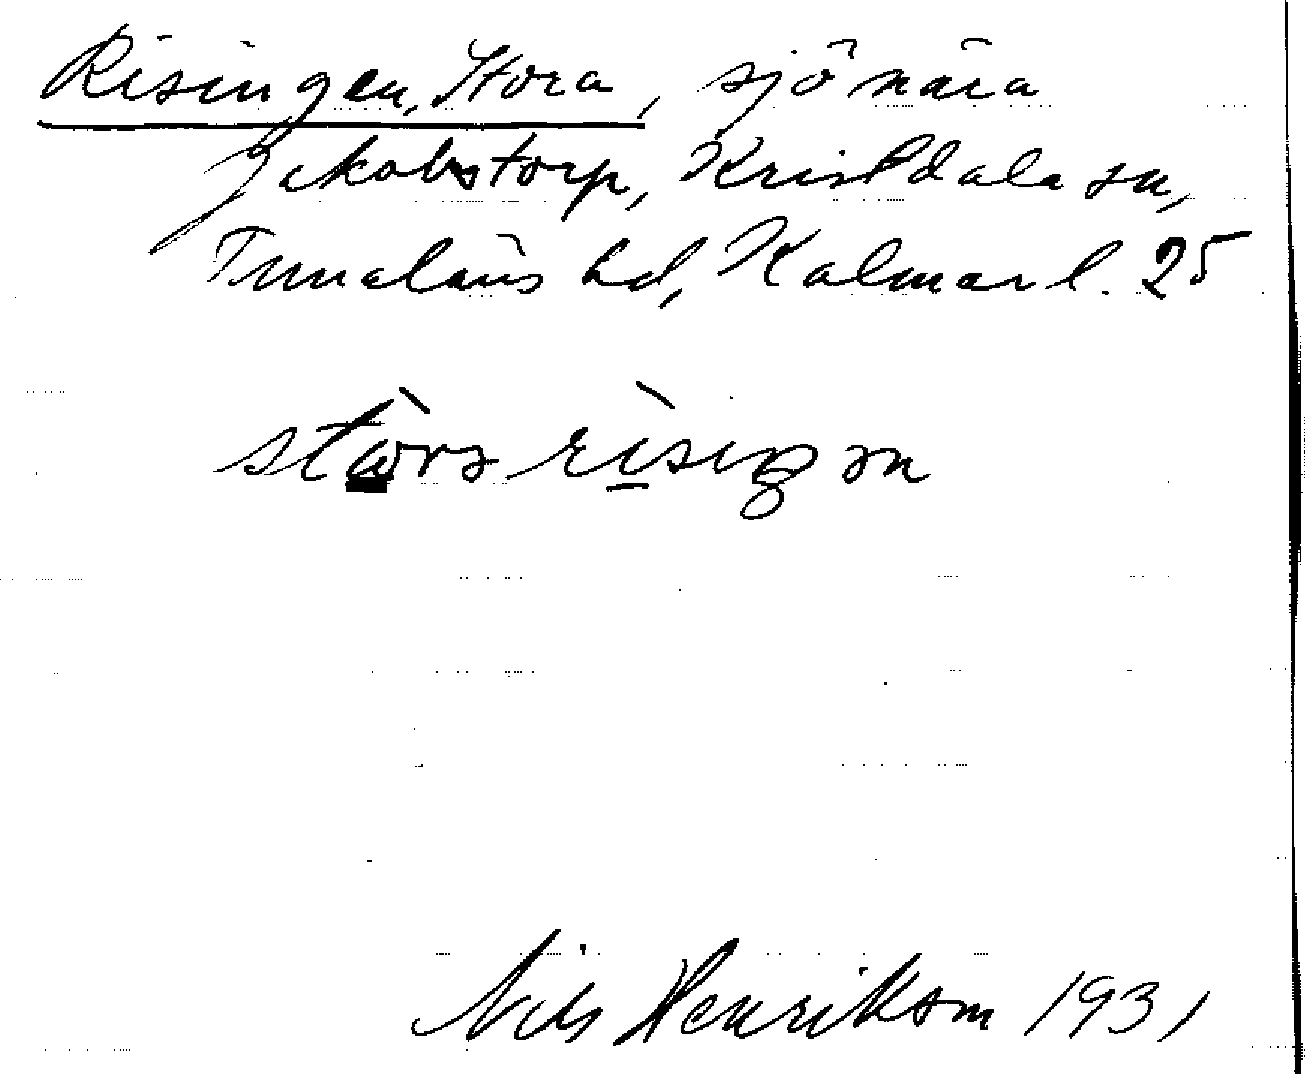 Risingen, Stora, sjö nära
Jakobstorp, Kristdala sn,
Tunaläns hd, Kalmar l. 25
Nils Henrikson 1931